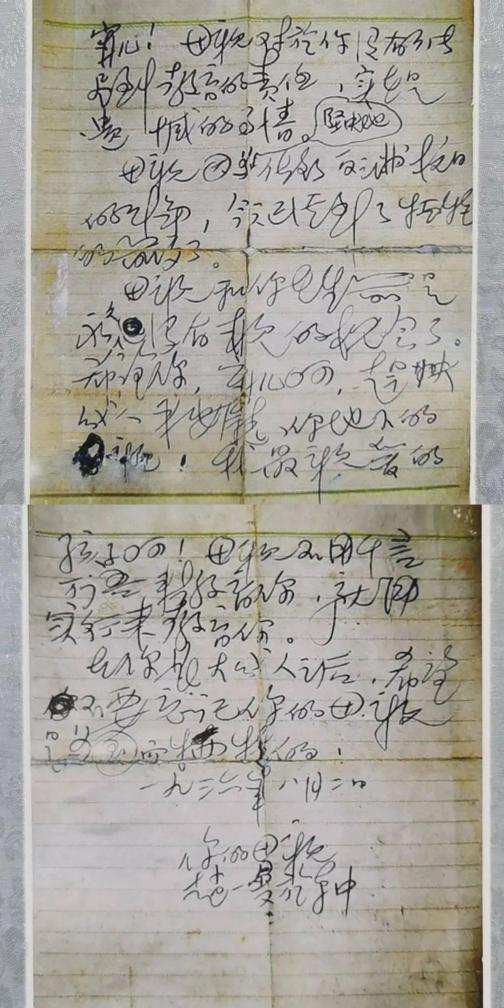 宁儿！母亲对于你没有能
尽到教育的责任，实在是
遗憾的事情。
母亲因为坚决地反满抗日
的斗争，今天已经到了牺牲
的前夕了。
母亲和你在生前是
永久没有见的机会了。
希望你，宁儿啊，赶快
成人，来安慰你地下的
母亲！我最亲爱的
孩子啊！母亲不用千言
万语来教育你，就用
实行来教育你。
在你长大成人之后，希望
不要忘记你的母亲
是为国而牺牲的！
一九三六年八月二日
你的母亲
赵一曼于车中